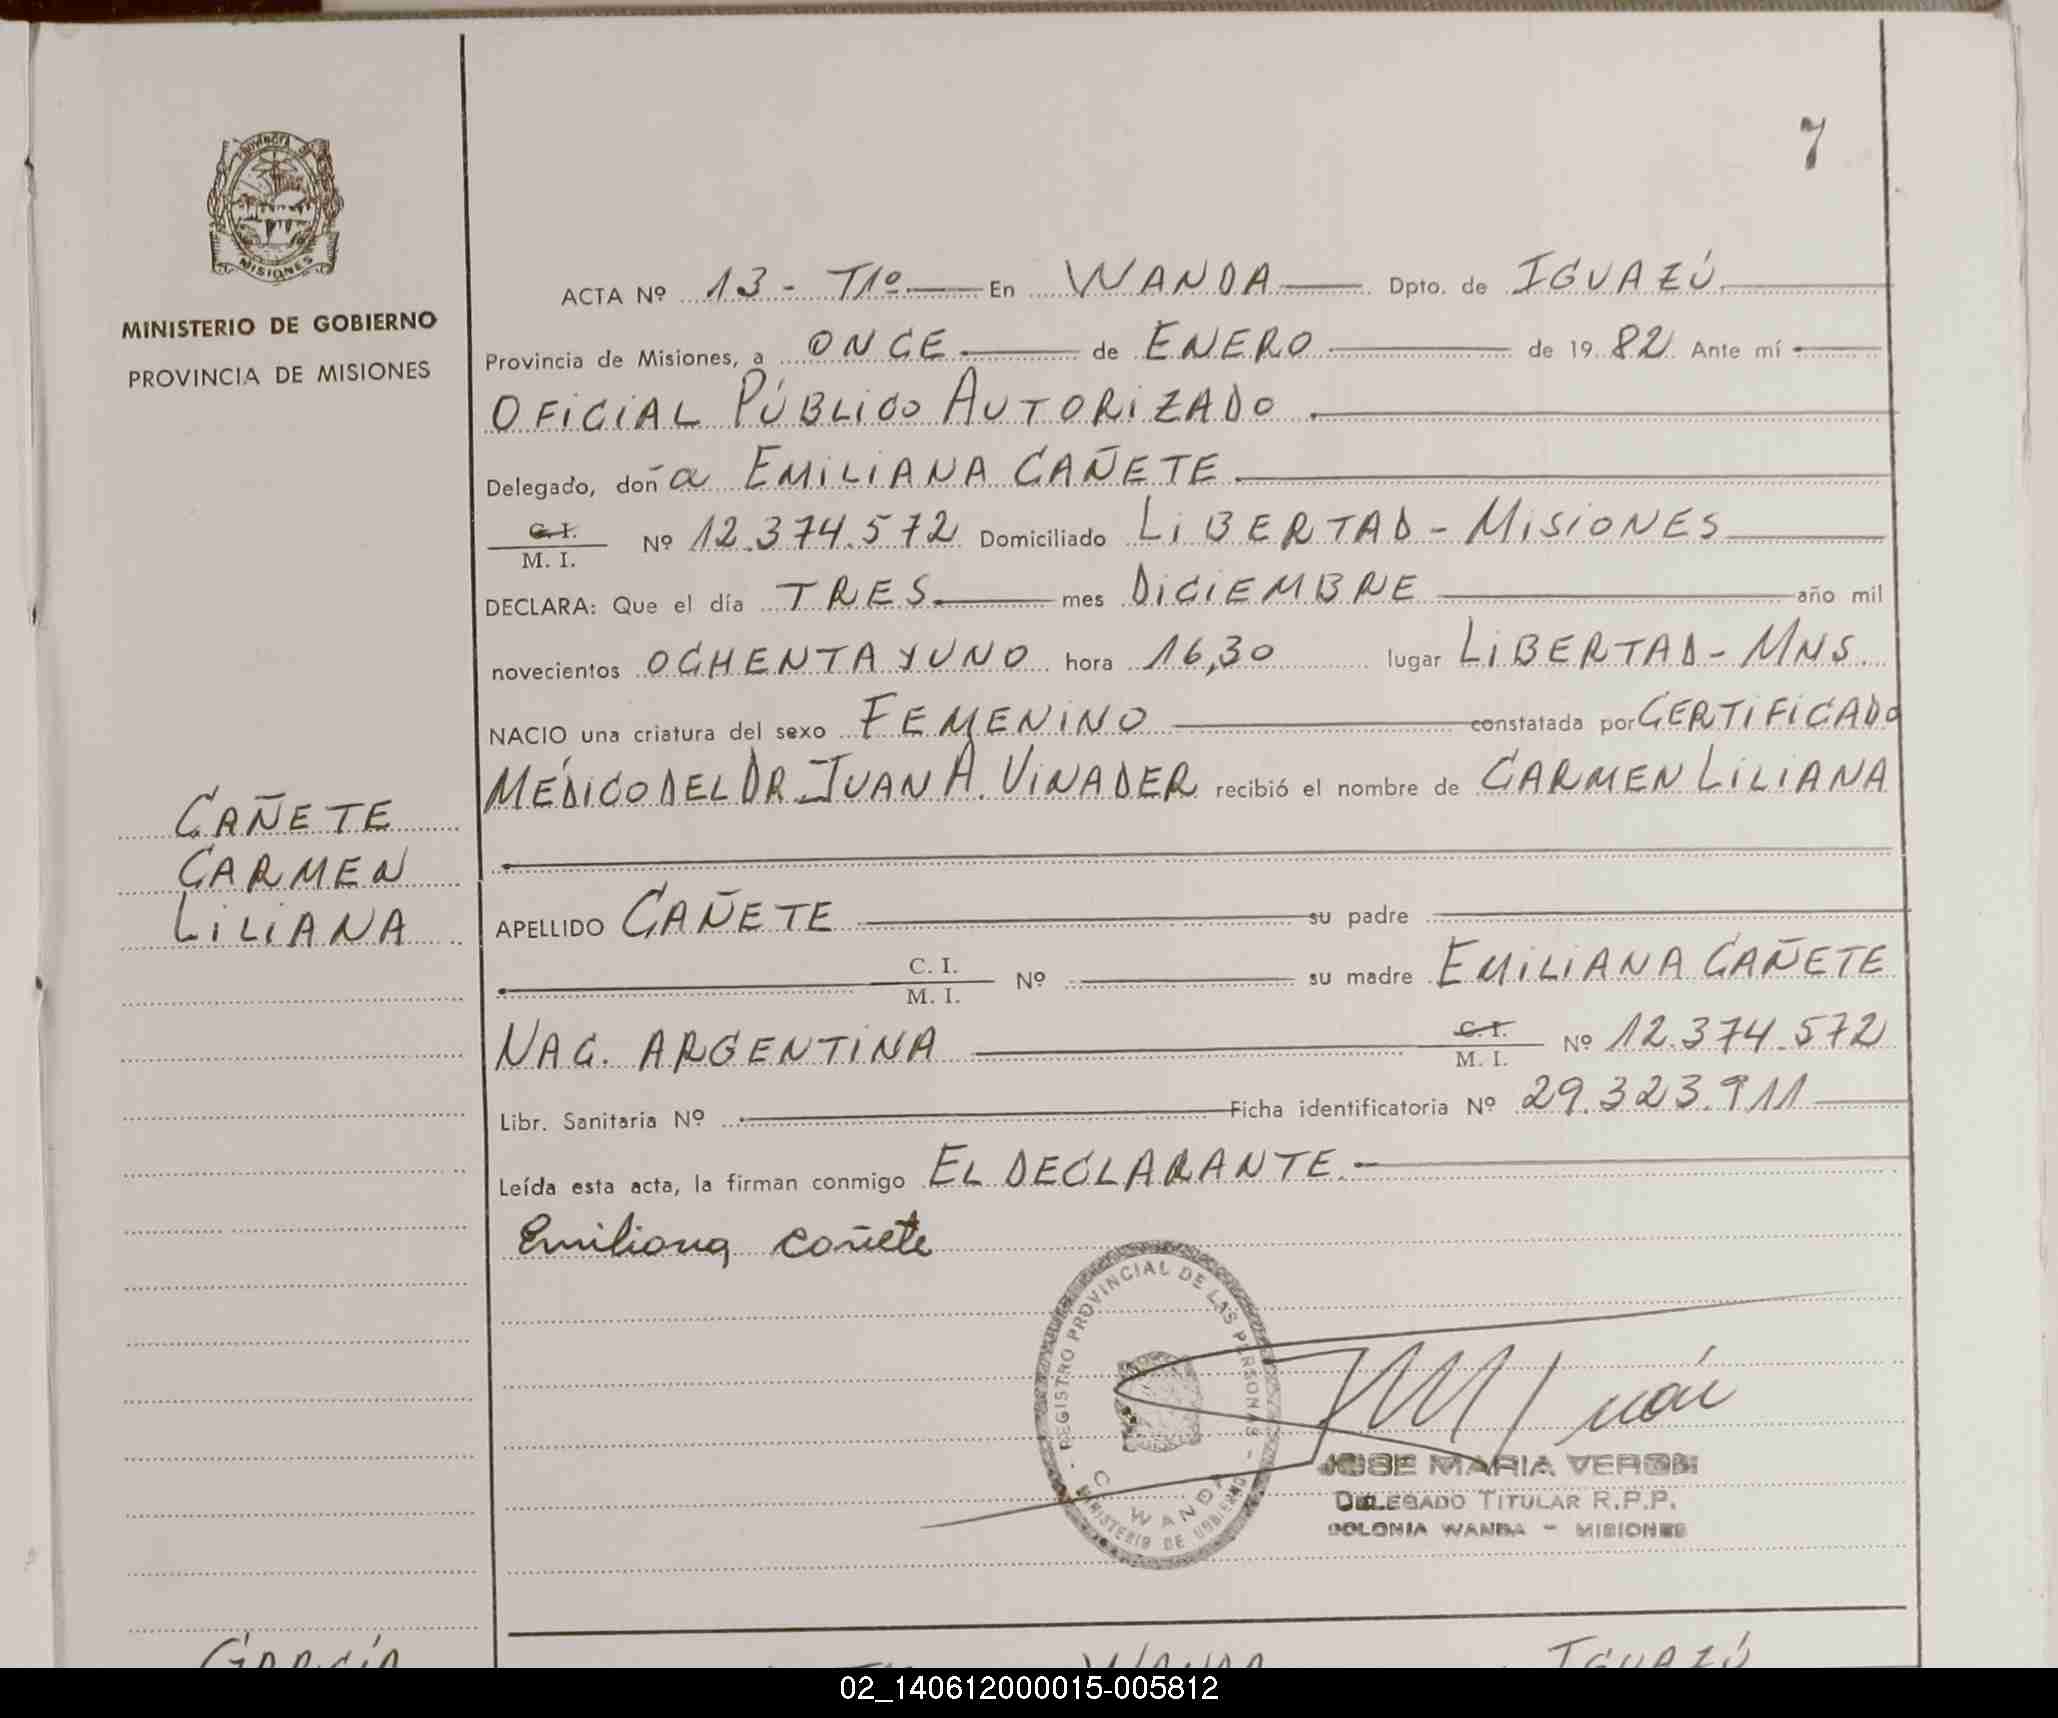 7
PROVINCIA DE
MISIONES
MINISTERIO DE GOBIERNO
PROVINCIA DE MISIONES
CAÑETE
CARMEN
LILIANA
ACTA Nº 13 - T1º En WANDA Dpto. de IGUAZÚ
Provincia de Misiones, a ONCE de ENERO de 1982 Ante mí
OFICIAL PÚBLICO AUTORIZADO
Delegado, doña EMILIANA CAÑETE
C. I.
M. I. Nº 12.374.572 Domiciliado LIBERTAD - MISIONES
DECLARA: Que el día TRES mes DICIEMBRE año mil
novecientos OCHENTA Y UNO hora 16,30 lugar LIBERTAD - MNS.
NACIO una criatura del sexo FEMENINO constatada por CERTIFICADO
MÉDICO DEL DR. JUAN A. VINADER recibió el nombre de CARMEN LILIANA
APELLIDO CAÑETE su padre
C. I.
M. I. Nº su madre EMILIANA CAÑETE
NAC. ARGENTINA C. I.
M. I. Nº 12.374.572
Libr. Sanitaria Nº Ficha identificatoria Nº 29.323.911
Leída esta acta, la firman conmigo EL DECLARANTE.-
Emiliana Cañete
- REGISTRO PROVINCIAL DE LAS PERSONAS -
MINISTERIO DE GOBIERNO
C. WANDA
JOSE MARIA VERON
DELEGADO TITULAR R.P.P.
COLONIA WANDA - MISIONES
GARCÍA WANDA IGUAZÚ
02_140612000015-005812